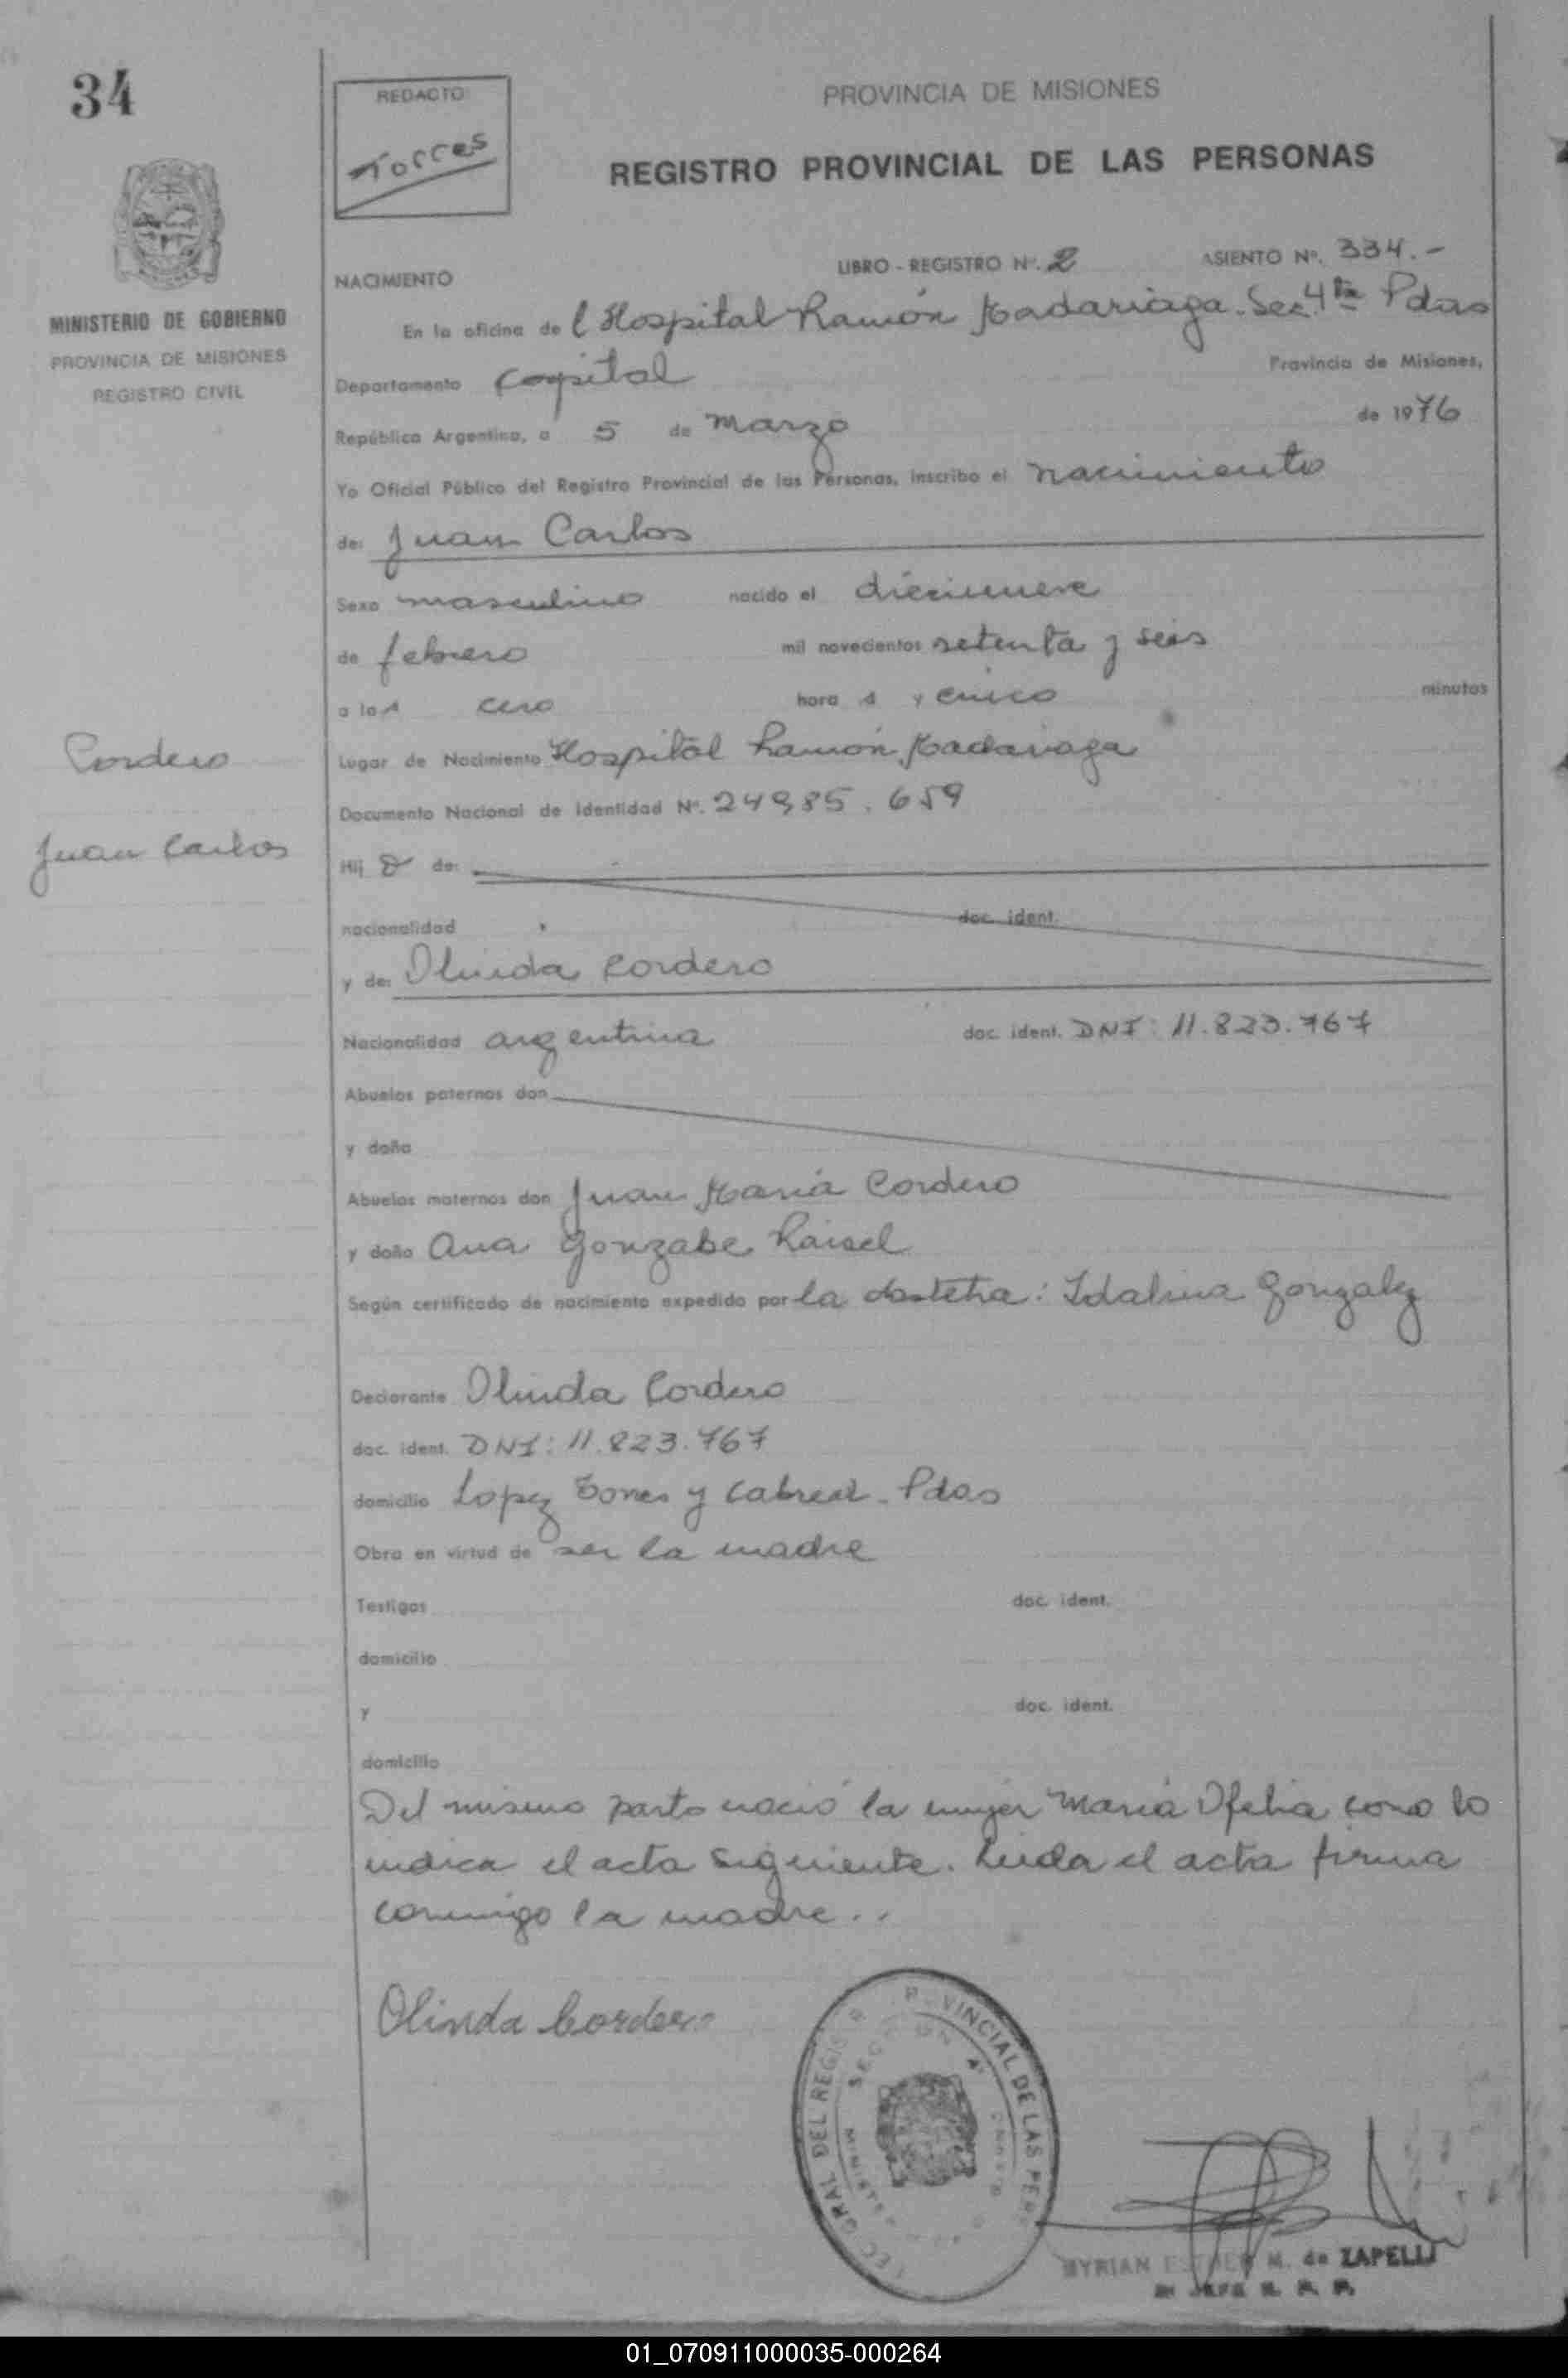 34
REDACTO:
Torres
PROVINCIA DE MISIONES
REGISTRO PROVINCIAL DE LAS PERSONAS
MINISTERIO DE GOBIERNO
PROVINCIA DE MISIONES
REGISTRO CIVIL
NACIMIENTO
LIBRO - REGISTRO Nº. 2
ASIENTO Nº. 334.-
En la oficina de l Hospital Ramón Madariaga. Sec. 4ta Pdas
Departamento Capital Provincia de Misiones,
República Argentina, a 5 de Marzo de 1976
Yo Oficial Público del Registro Provincial de las Personas, inscribo el nacimiento
de: Juan Carlos
Sexo masculino nacido el diecinueve
de febrero mil novecientos setenta y seis
a las cero hora s y cinco minutos
Cordero
Juan Carlos
Lugar de Nacimiento Hospital Ramón Madariaga
Documento Nacional de Identidad Nº. 24985.659
Hij o de:
nacionalidad doc. ident.
y de: Olinda Cordero
Nacionalidad argentina doc. ident. DNI: 11.823.767
Abuelos paternos don
y doña
Abuelos maternos don Juan María Cordero
y doña Ana Gonzabe
Según certificado de nacimiento expedido por la obstetra: Idalina Gonzalez
Declarante Olinda Cordero
doc. ident. DNI: 11.823.767
domicilio Lopez Torres y Cabred - Pdas
Obra en virtud de ser la madre
Testigos doc. ident.
domicilio
y doc. ident.
domicilio
Del mismo parto nació la mujer María Ofelia como lo
indica el acta siguiente. Leida el acta firma
conmigo la madre..
Olinda Cordero
GRAL DEL REGIS VINCIAL DE LAS PERS
SEC ON 4ª
MINISTE
MYRIAN ESTHER M. de ZAPELLI
JEFE R. P. P.
01_070911000035-000264